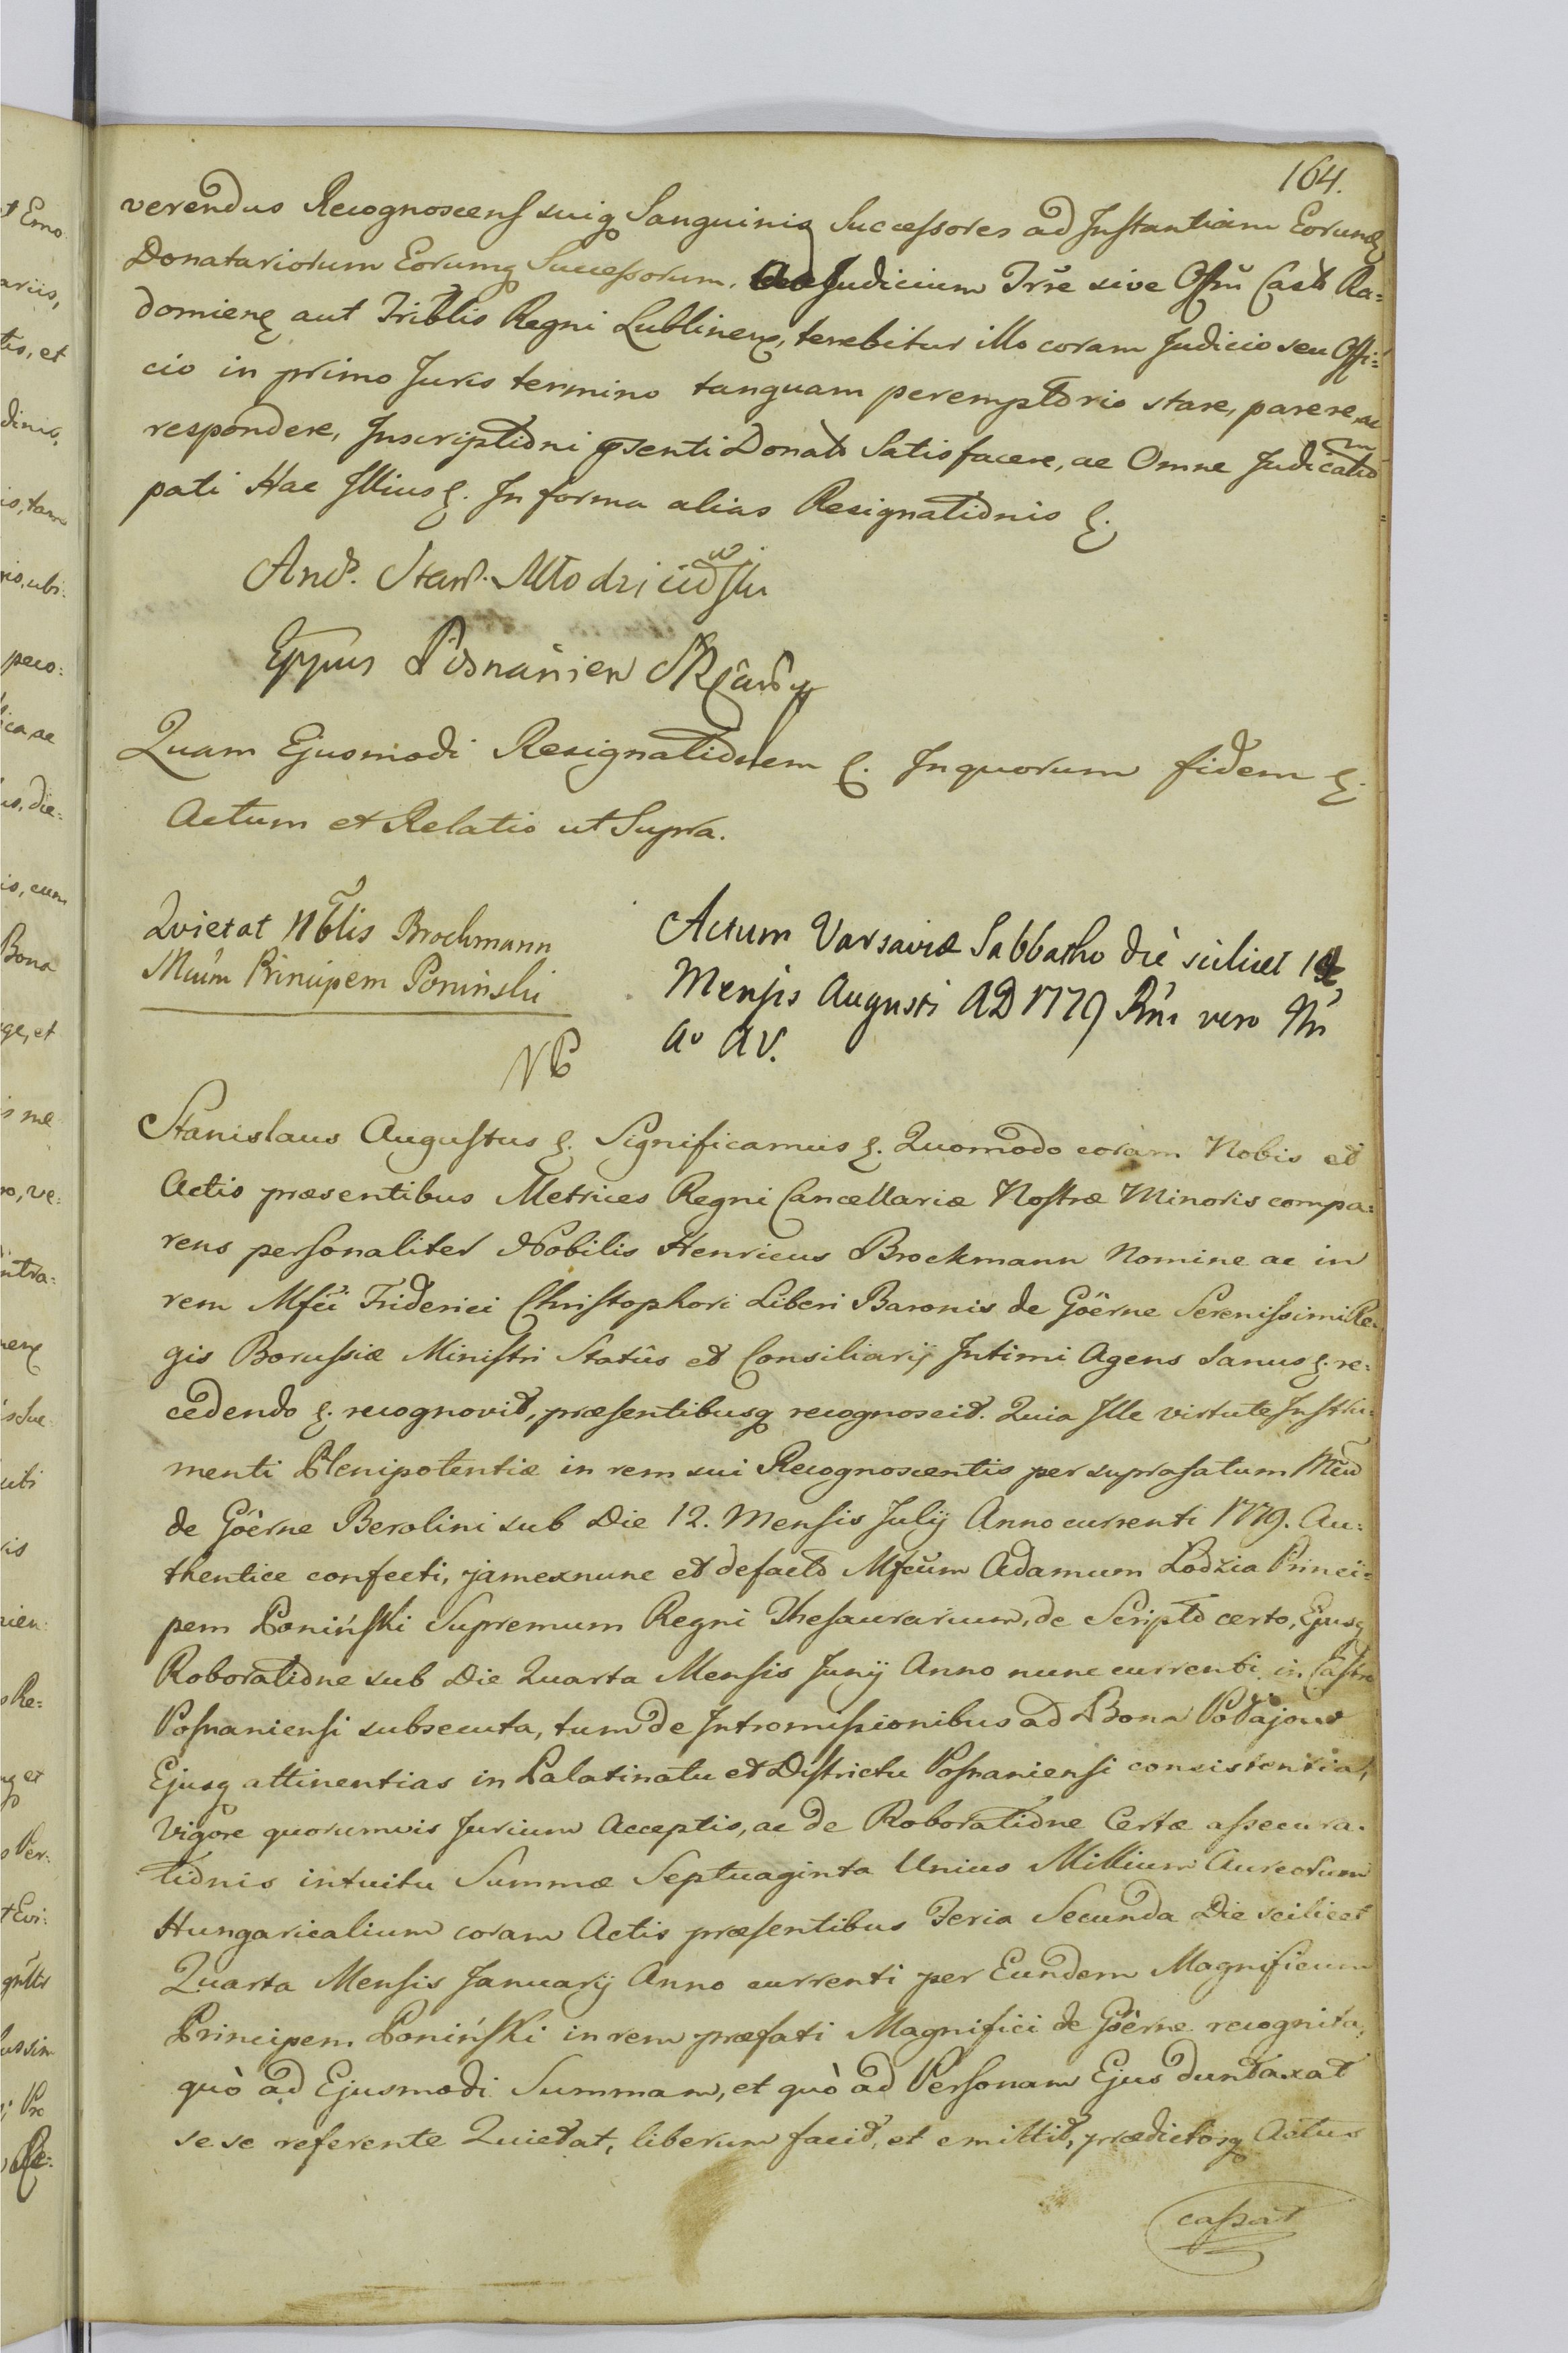 164.
verendus Recognoscens suiq Sanguinis Successores ad Instantiam Eorund
Donatariorum Eorumq Successorum, Judicium Trre sive Offm Castr Ra=
domien aut Triblis Regni Lublinen, tenebitur illo coram Judicio seu Offi=
cio in primo Juris termino tanquam peremptorio stare, parere, ac
respondere, Inscriptioni psenti Donatt Satisfacere, ac Omne Judicatum
pati Hac Illius &. In forma alias Resignationis &.
And. Stan. Młodziiowski
Eppus Posnanien
Quam Ejusmodi Resignationem &. In quorum fidem &.
Actum et Relatio ut Supra.
Quietat Nblis Brockmann
Mcum Principem Poninski
NB
Actum Varsaviæ Sabbatho die scilicet 14
Mensis Augusti AD 1779 Rni vero Nri
Ao AV.
Stanislaus Augustus &. Significamus &. Quomodo coram Nobis et
Actis præsentibus Metrices Regni Cancellariæ Nostræ Minoris compa=
rens personaliter Nobilis Henricus Brockmann Nomine ac in
rem Mfci Friderici Christophori Liberi Baronis de Göerne Serenissimi Re=
gis Borussiæ Ministri Statûs et Consiliarij Intimi Agens Sanus &. re=
cedendo &. recognovit, præsentibusq recognoscit. Quia Ille virtute Instru=
menti Plenipotentiæ in rem sui Recognoscentis per suprafatum Mcum
de Göerne Berolini sub Die 12. Mensis Julij Anno currenti 1779. Au=
thentice confecti, jam exnunc et defacto Mfcum Adamum Łodzia Princi=
pem Poniński Supremum Regni Thesaurarium, de Scripto certo, Ejusq
Roboratione sub Die Quarta Mensis Junij Anno nunc currenti in Castro
Posnaniensi subsecuta, tum de Intromissionibus ad Bona
Ejusq attinentias in Palatinatu et Districtu Posnaniensi consistentia,
Vigore quorumvis Jurium Acceptis, ac de Roboratione Certæ assecura=
tionis intuitu Summæ Septuaginta Unius Millium Aureorum
Hungaricalium coram Actis præsentibus Feria Secunda Die scilicet
Quarta Mensis Januarij Anno currenti per Eundem Magnificum
Principem Poniński in rem præfati Magnifici de Göerne recognita,
quò ad Ejusmodi Summam, et quò ad Personam Ejus duntaxat
sese referente Quietat, liberum facit, et emittit, prædictosq Actus
cassat